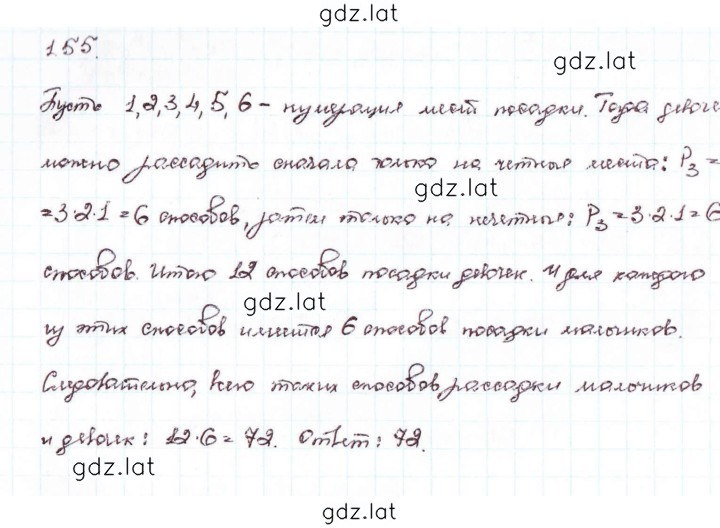 gdz.lat
155.
gdz.lat
Пусть 1,2,3,4,5,6 – нумерация мест посадки. Тогда девоче
можно рассадить сначала только на четные места: P₃ =
gdz.lat
=3·2·1=6 способов, затем только на нечетные: P₃=3·2·1=6
способов. Итого 12 способов посадки девочек. И для каждого
gdz.lat
из этих способов имеется 6 способов посадки мальчиков.
Следовательно, всего таких способов рассадки мальчиков
и девочек: 12·6=72. Ответ: 72.
gdz.lat
gdz.lat